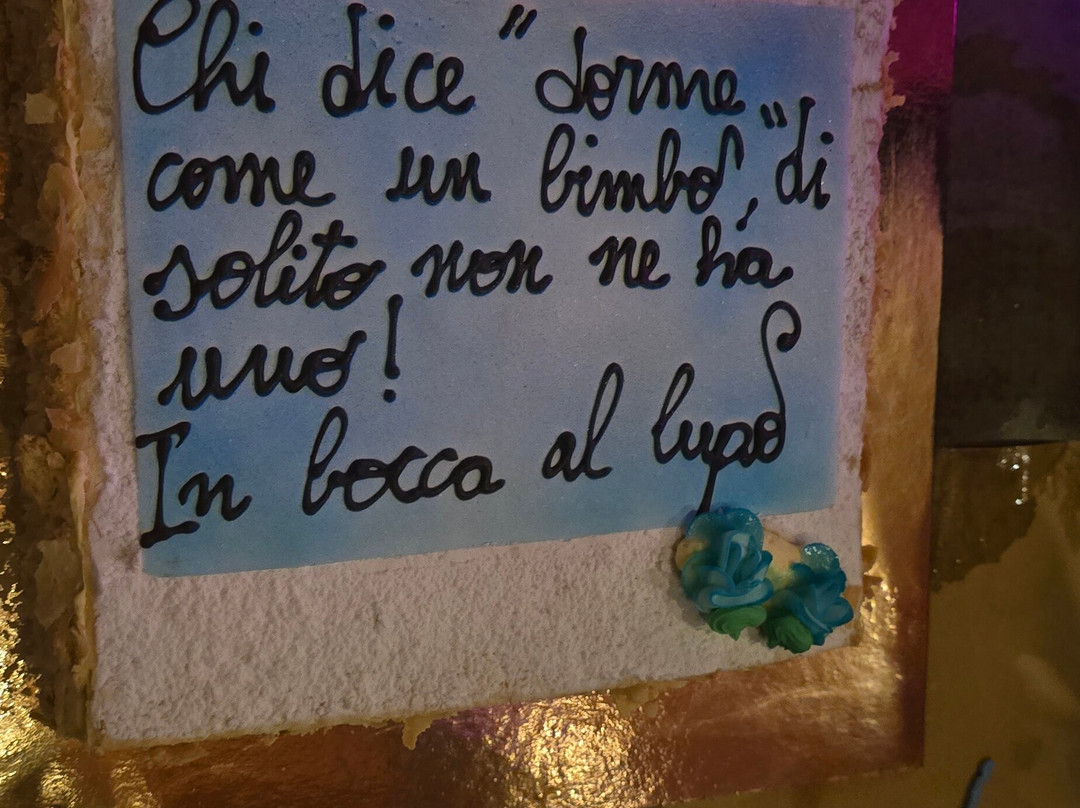 Chi dice "dorme
come un bimbo", di
solito non ne há
uno!
In bocca al lupo